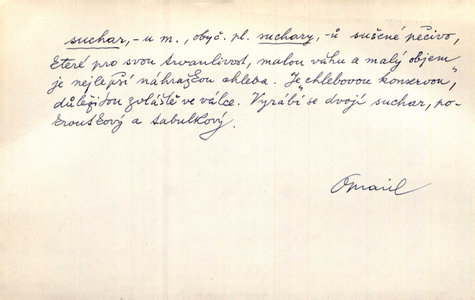 suchar, -u m., obyč. pl. suchary, -ů sušené pečivo,
které pro svou trvanlivost, malou váhu a malý objem
je nejlepší náhražkou chleba. Je „chlebovou konservou",
důležitou zvláště ve válce. Vyrábí se dvojí suchar, po-
kroutkový a tabulkový.